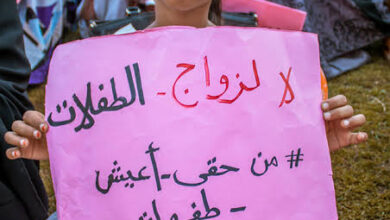 لا لزواج - الطفلات
# من حقي - أعيش
- طفولتي